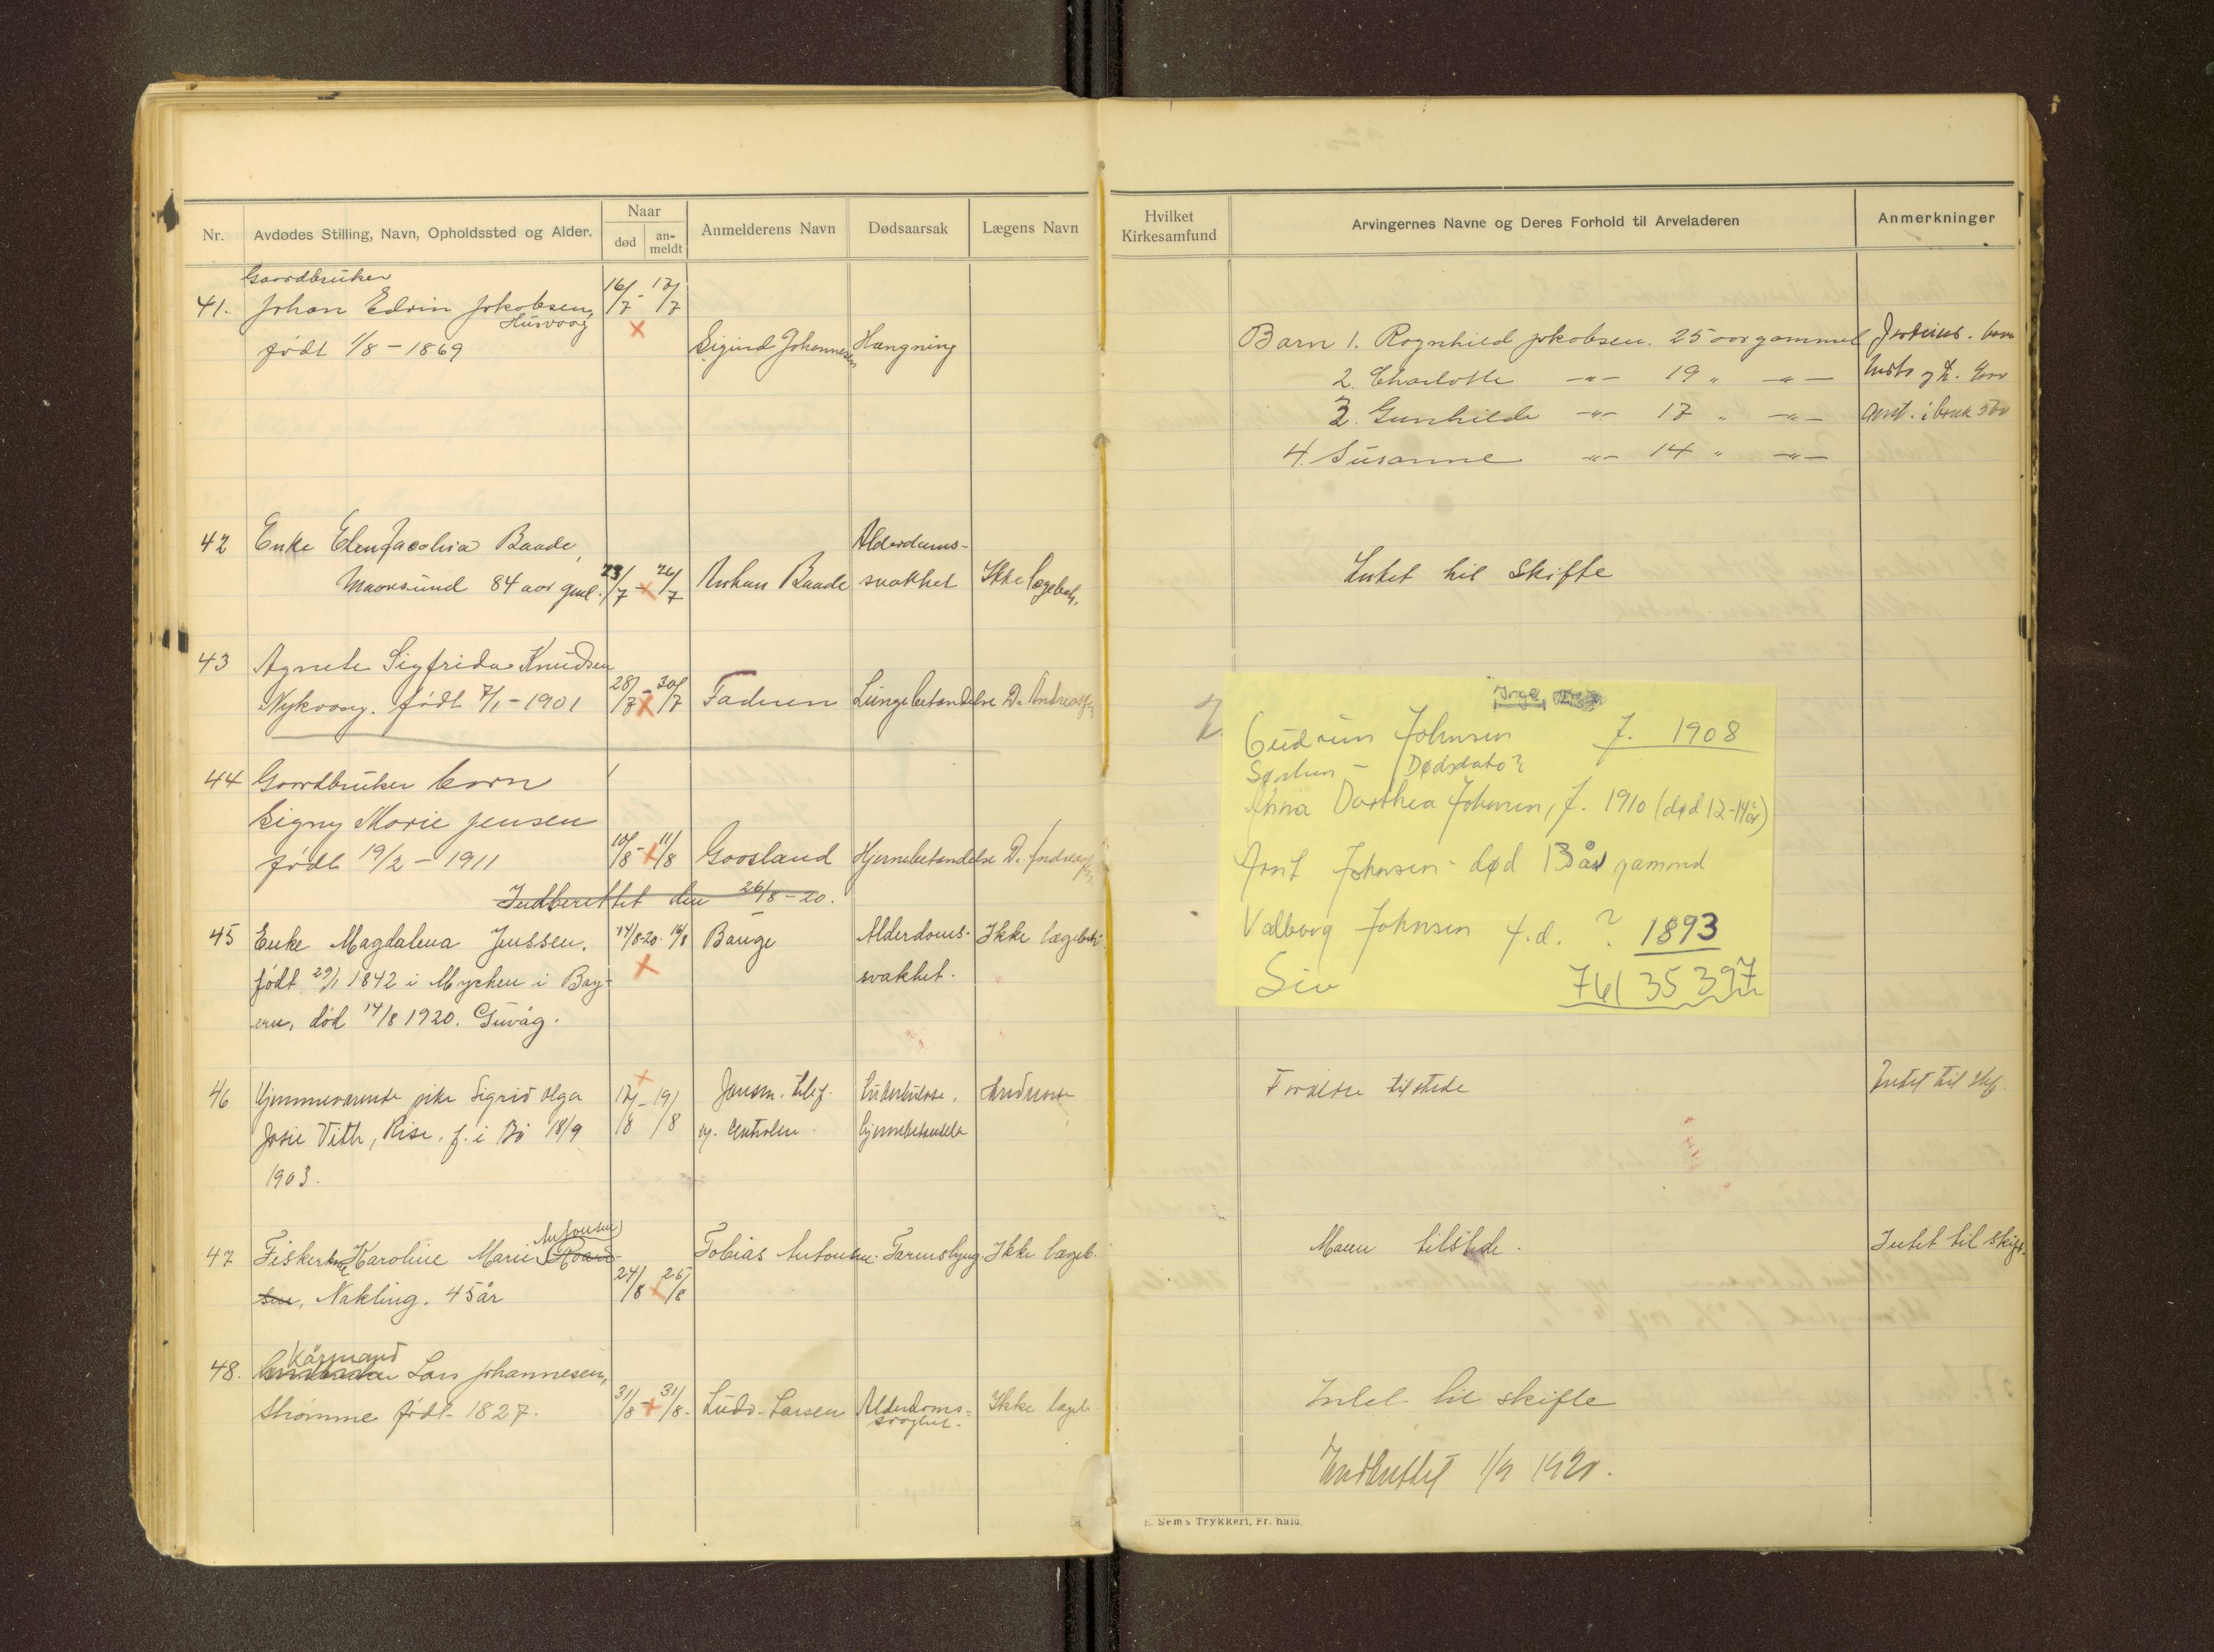 Nr. Avdødes Stilling, Navn, Opholdssted og Alder. Naar død an-meldt Anmelderens Navn Dødsaarsak Lægens Navn
Hvilket Kirkesamfund Arvingernes Navne og Deres Forhold til Arveladeren Anmerkninger
Gaardbruker
41. Johan Edvin Jakobsen, 16/7 - 17/7
Husvaag
født 1/8 - 1869 Sigurd Johannesen Hængning
Barn 1. Ragnhild Jakobsen. 25 aar gammel
2. Charlotte -"- 19 " -"-
3. Gunhilde -"- 17 " -"-
4. Susanne -"- 14 " -"-
42 Enke Elen Jacobia Baade, Alderdoms-
84 aar gml. 23/7 - 26/7 Baade svakhet Ikke lægebeh.
Intet til Skifte
43 Agnete Sigfrida Knudsen
Nykvaag. født 7/1 - 1901 28/7 - 30/7 Faderen Lungebetændelse D. Andreas
44 Gaardbruker barn
Signy Marie Jensen
født 19/2 - 1911 10/8 - 11/8 Goosland Hjernebetændelse D.
Indberettet den 26/8 - 20.
45 Enke Magdalena Jenssen. 14/8-20 - 16/8 Bauge Alderdoms- Ikke lægebeh.
født 29/1 1842 i Mychen i Bay- svakhet.
ern, død 14/8 1920. Guvåg.
46 Hjemmeværende pike Sigrid Olga 17/8 - 19/8
Josie Veth, Rise. f. i Bø 18/9
1903.
Forældre tilstede Intet til skf.
Antonsen
47 Fiskerkone Karoline Marie Tobias Antonsen Ikke lægeb.
Nakling. 45 år 24/8 25/8
Mann tilstede. Intet til skift.
Kårmand
48. Lars Johannesen,
Skomme født 1827. 31/8 - 31/8 - Ludv. Larsen Alderdoms- Ikke lægeb.
svaghet.
Intet til skifte
Indberettet 1/9 1920.
E. Sem's Trykkeri, Fr. hald.
Gudrun Johnsen f. 1908
Søsken - Dødsdato?
Anna Dorthea Johnsen, f. 1910 (død 12-14 år)
Arnt Johnsen - død 13 år gammel
Valborg Johnsen f.d. ? 1893
Siv 761 35 397